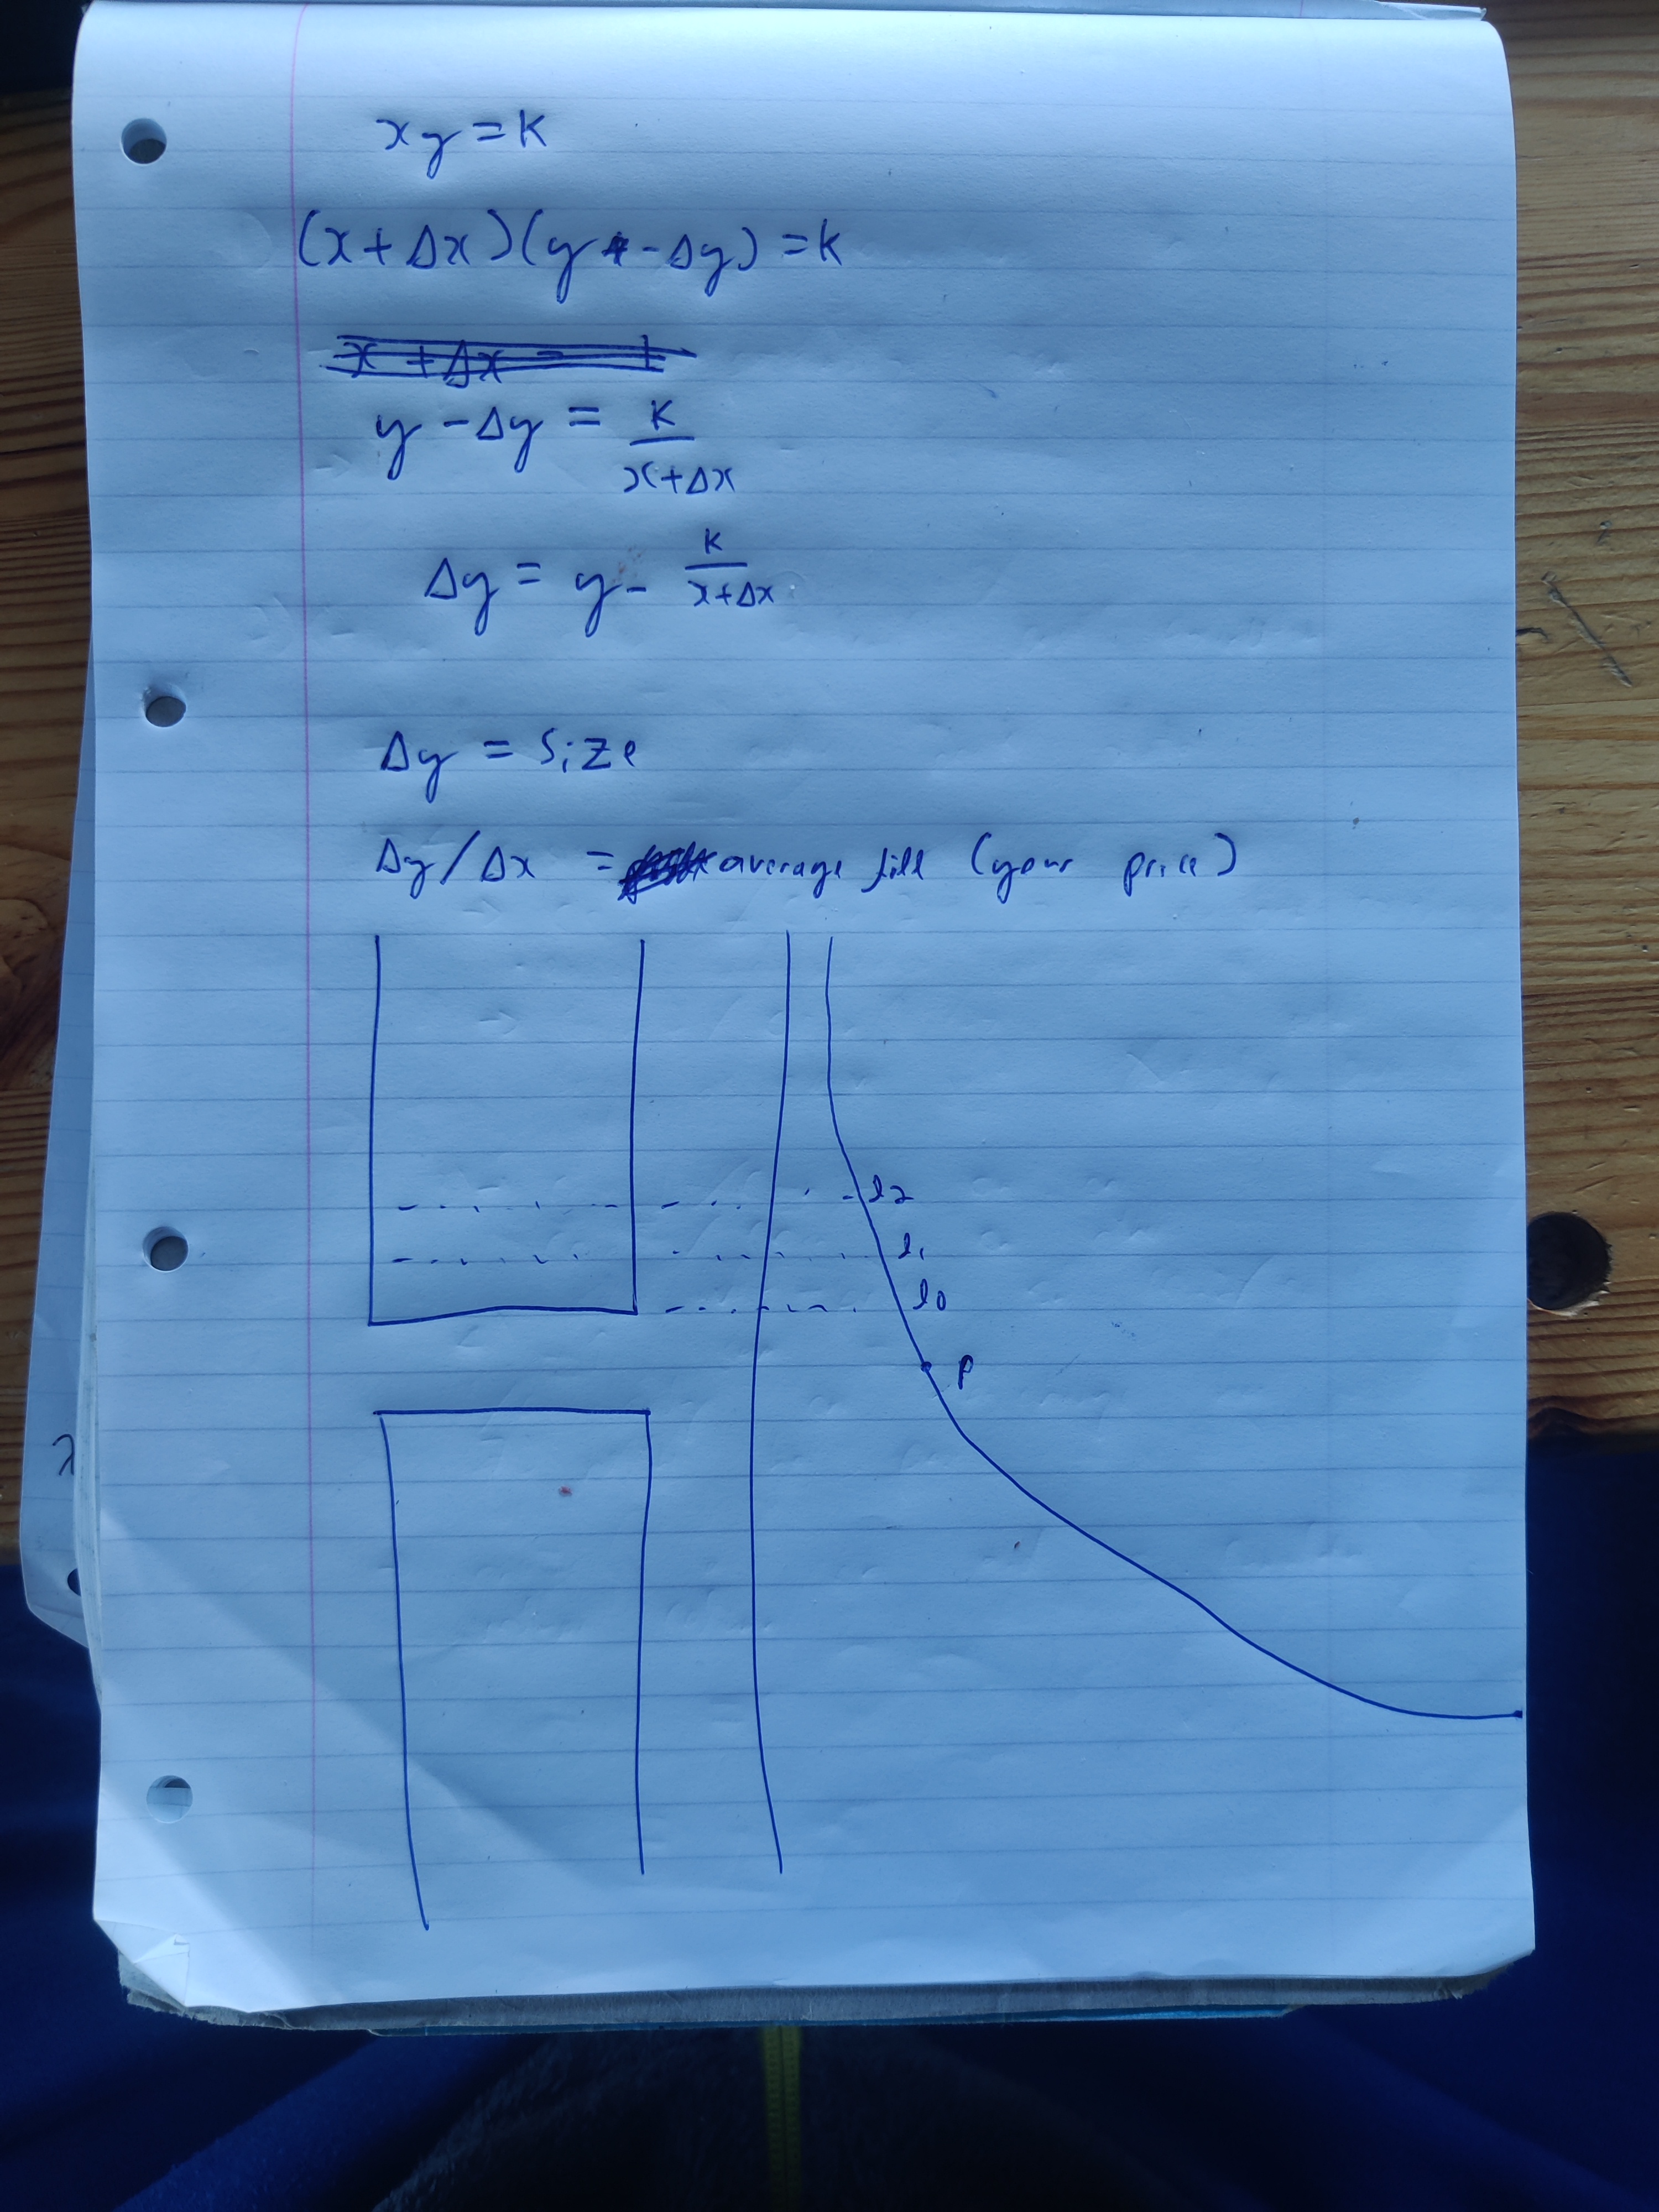 xy = k
(x + Δx)(y - Δy) = k
x + Δx =
y - Δy = k / x+Δx
Δy = y - k / x+Δx
Δy = Size
Δy / Δx = average fill (your price)
l2
l1
l0
p
λ